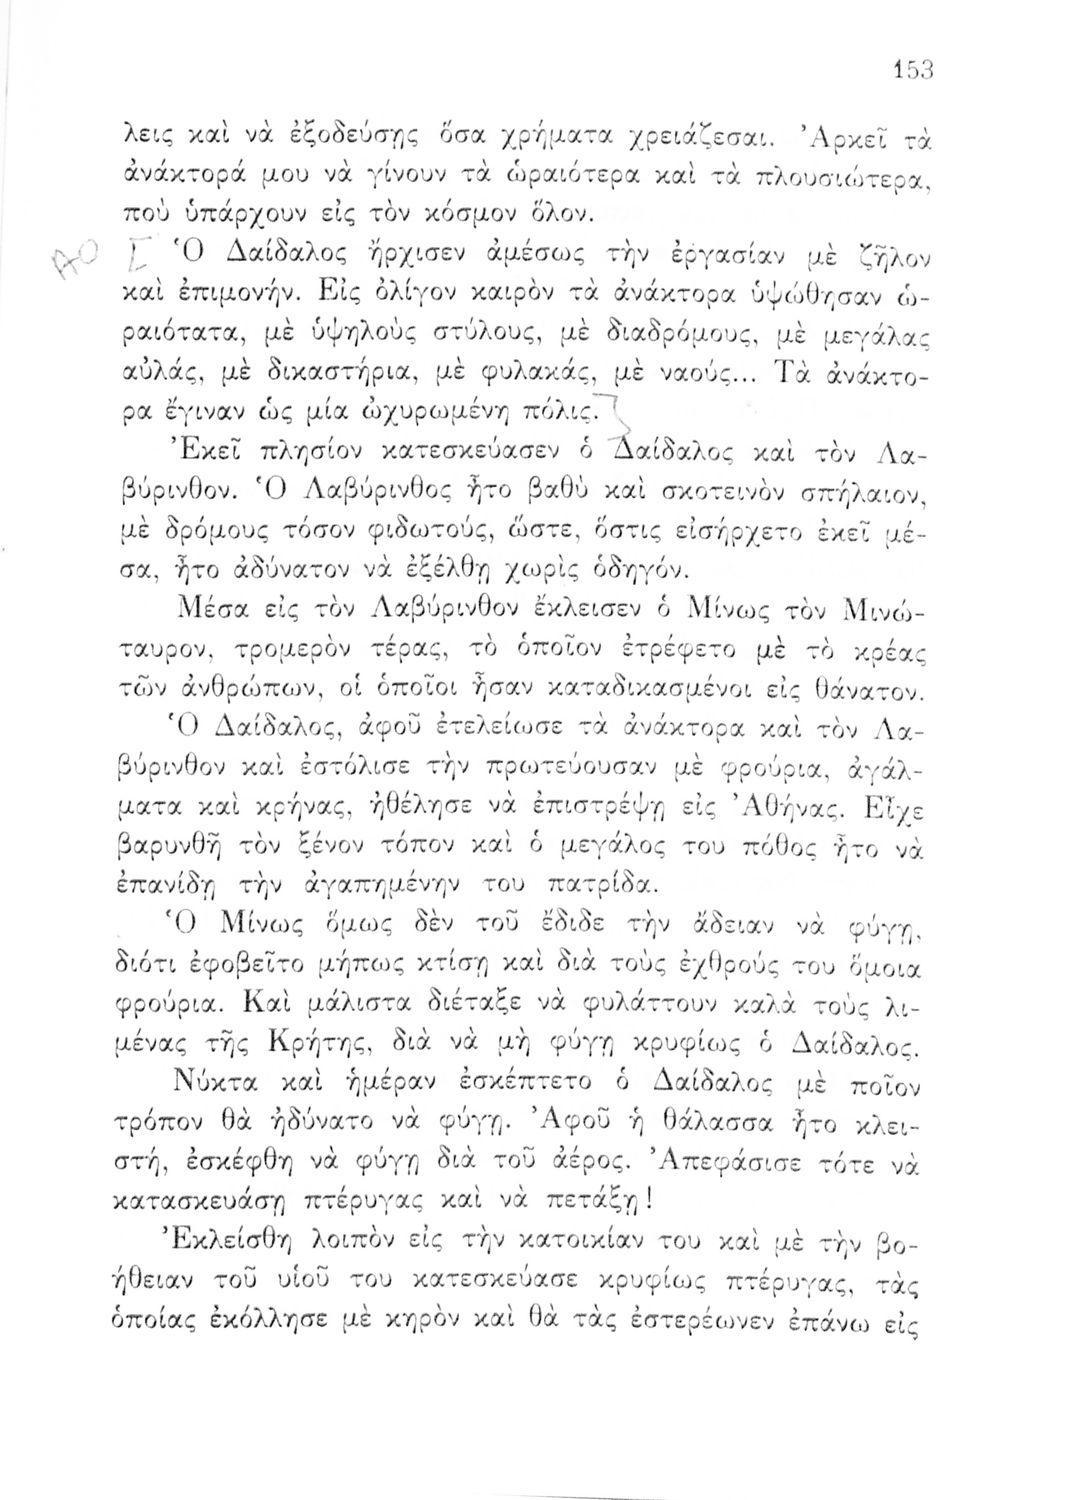 153
λεις καὶ νὰ ἐξοδεύσῃς ὅσα χρήματα χρειάζεσαι. Ἀρκεῖ τὰ
ἀνάκτορά μου νὰ γίνουν τὰ ὡραιότερα καὶ τὰ πλουσιώτερα,
ποὺ ὑπάρχουν εἰς τὸν κόσμον ὅλον.
ΑΟ [ Ὁ Δαίδαλος ἤρχισεν ἀμέσως τὴν ἐργασίαν μὲ ζῆλον
καὶ ἐπιμονήν. Εἰς ὀλίγον καιρὸν τὰ ἀνάκτορα ὑψώθησαν ὡ-
ραιότατα, μὲ ὑψηλοὺς στύλους, μὲ διαδρόμους, μὲ μεγάλας
αὐλάς, μὲ δικαστήρια, μὲ φυλακάς, μὲ ναούς... Τὰ ἀνάκτο-
ρα ἔγιναν ὡς μία ὠχυρωμένη πόλις. ]
Ἐκεῖ πλησίον κατεσκεύασεν ὁ Δαίδαλος καὶ τὸν Λα-
βύρινθον. Ὁ Λαβύρινθος ἦτο βαθὺ καὶ σκοτεινὸν σπήλαιον,
μὲ δρόμους τόσον φιδωτούς, ὥστε, ὅστις εἰσήρχετο ἐκεῖ μέ-
σα, ἦτο ἀδύνατον νὰ ἐξέλθῃ χωρὶς ὁδηγόν.
Μέσα εἰς τὸν Λαβύρινθον ἔκλεισεν ὁ Μίνως τὸν Μινώ-
ταυρον, τρομερὸν τέρας, τὸ ὁποῖον ἐτρέφετο μὲ τὸ κρέας
τῶν ἀνθρώπων, οἱ ὁποῖοι ἦσαν καταδικασμένοι εἰς θάνατον.
Ὁ Δαίδαλος, ἀφοῦ ἐτελείωσε τὰ ἀνάκτορα καὶ τὸν Λα-
βύρινθον καὶ ἐστόλισε τὴν πρωτεύουσαν μὲ φρούρια, ἀγάλ-
ματα καὶ κρήνας, ἠθέλησε νὰ ἐπιστρέψῃ εἰς Ἀθήνας. Εἶχε
βαρυνθῆ τὸν ξένον τόπον καὶ ὁ μεγάλος του πόθος ἦτο νὰ
ἐπανίδῃ τὴν ἀγαπημένην του πατρίδα.
Ὁ Μίνως ὅμως δὲν τοῦ ἔδιδε τὴν ἄδειαν νὰ φύγῃ,
διότι ἐφοβεῖτο μήπως κτίσῃ καὶ διὰ τοὺς ἐχθρούς του ὅμοια
φρούρια. Καὶ μάλιστα διέταξε νὰ φυλάττουν καλὰ τοὺς λι-
μένας τῆς Κρήτης, διὰ νὰ μὴ φύγῃ κρυφίως ὁ Δαίδαλος.
Νύκτα καὶ ἡμέραν ἐσκέπτετο ὁ Δαίδαλος μὲ ποῖον
τρόπον θὰ ἠδύνατο νὰ φύγῃ. Ἀφοῦ ἡ θάλασσα ἦτο κλει-
στή, ἐσκέφθη νὰ φύγῃ διὰ τοῦ ἀέρος. Ἀπεφάσισε τότε νὰ
κατασκευάσῃ πτέρυγας καὶ νὰ πετάξῃ!
Ἐκλείσθη λοιπὸν εἰς τὴν κατοικίαν του καὶ μὲ τὴν βο-
ήθειαν τοῦ υἱοῦ του κατεσκεύασε κρυφίως πτέρυγας, τὰς
ὁποίας ἐκόλλησε μὲ κηρὸν καὶ θὰ τὰς ἐστερέωνεν ἐπάνω εἰς